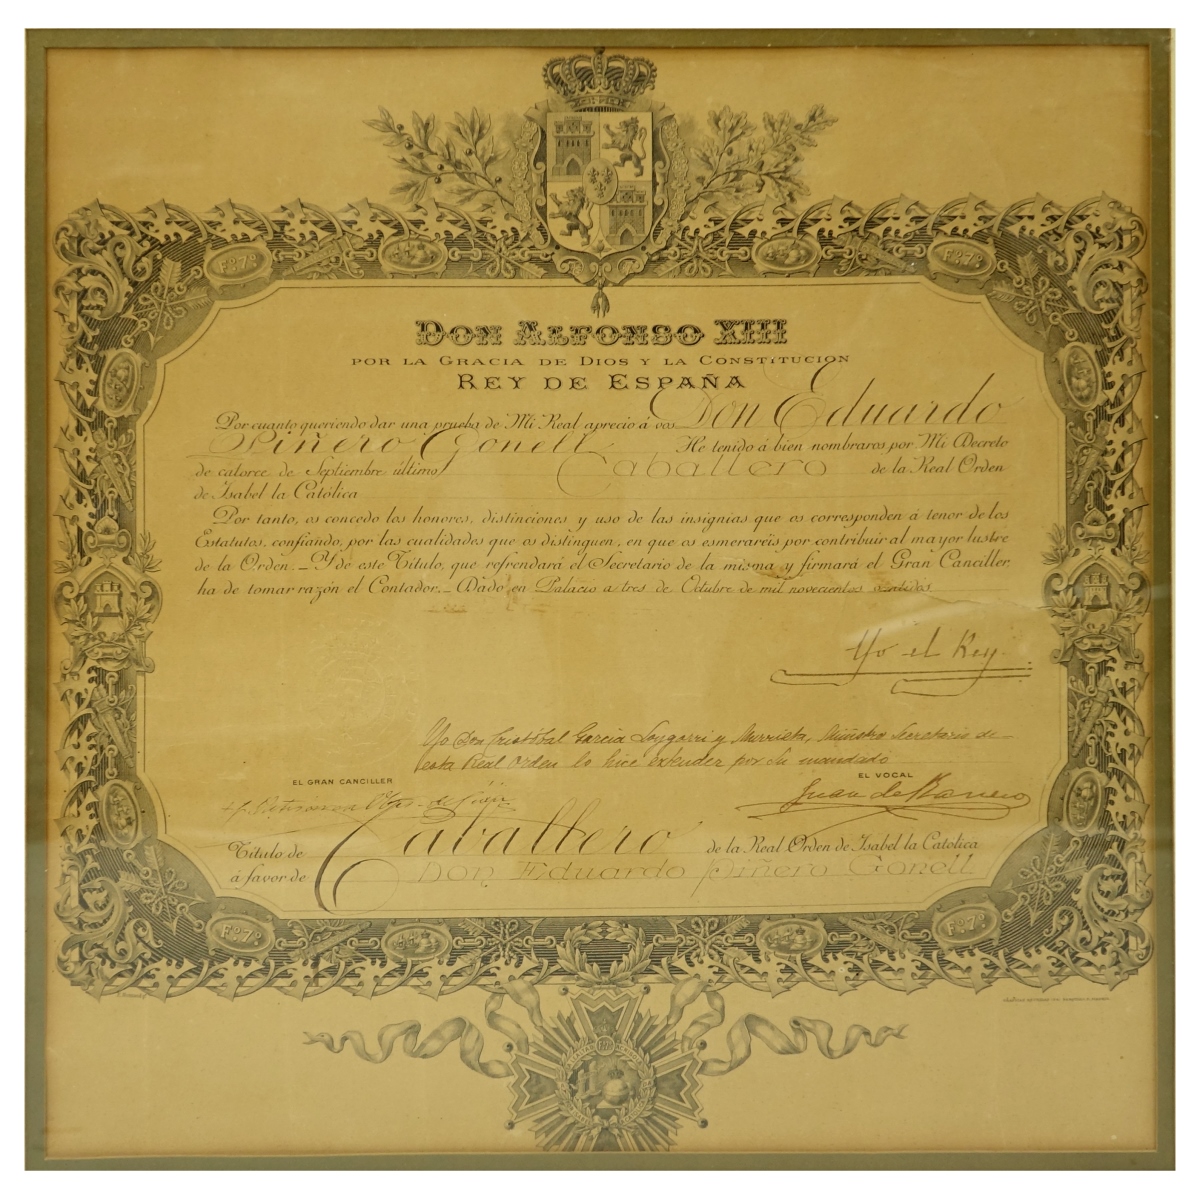 Fº.7º.
Fº.7º.
DON ALFONSO XIII
POR LA GRACIA DE DIOS Y LA CONSTITUCION
REY DE ESPAÑA
Por cuanto queriendo dar una prueba de Mi Real aprecio á vos Don Eduardo
Piñero Gonell He tenido á bien nombraros por Mi Decreto
de catorce de Septiembre último Caballero de la Real Orden
de Isabel la Católica
Por tanto, os concedo los honores, distinciones y uso de las insignias que os corresponden á tenor de los
Estatutos, confiando, por las cualidades que os distinguen, en que os esmeraréis por contribuir al mayor lustre
de la Orden._Y de este Título, que refrendará el Secretario de la misma y firmará el Gran Canciller,
ha de tomar razón el Contador._Dado en Palacio a tres de Octubre de mil novecientos veintidos
Yo el Rey.
Yo Don Cristóbal Garcia Loygorri y Murrieta, Ministro Secretario de
esta Real Orden lo hice extender por Su mandado
EL GRAN CANCILLER
EL VOCAL
Juan de Ranero
Título de Caballero de la Real Orden de Isabel la Católica
á favor de Don Eduardo Piñero Gonell
Fº.7º.
Fº.7º.